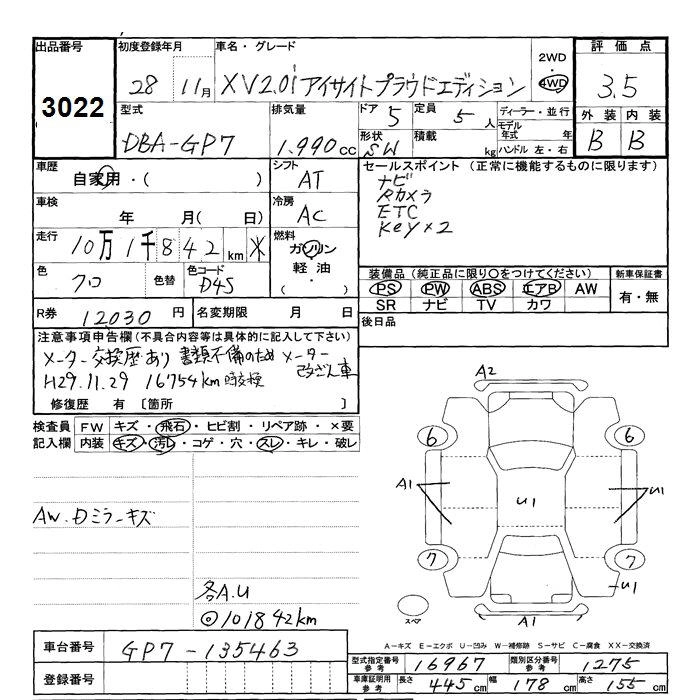 出品番号 初度登録年月 車名・グレード 2WD・4WD 評価点
3022 28 11月 XV2.0i アイサイトプラウドエディション 3.5
型式 排気量 ドア 5 定員 5人 ディーラー・並行 外装 内装
DBA-GP7 1.990cc 形状 SW 積載 kg モデル年式 年 ハンドル 左・右 B B
車歴 自家用・( ) シフト AT セールスポイント (正常に機能するものに限ります)
車検 年 月( 日) 冷房 AC ナビ
Rカメラ
ETC
Key×2
走行 10万1千842km ※ 燃料 ガソリン 軽油・( )
色 クロ 色替 色コード D4S 装備品(純正品に限り○をつけてください) 新車保証書
PS PW ABS エアB AW 有・無
SR ナビ TV カワ
R券 12030円 名変期限 月 日 後日品
注意事項申告欄(不具合内容等は具体的に記入して下さい)
メーター交換歴あり 書類不備のため メーター改ざん車
H29.11.29 16754km時交換
修復歴 有 [箇所 ]
検査員記入欄 FW キズ・飛石・ヒビ割・リペア跡・×要
内装 キズ・汚レ・コゲ・穴・スレ・キレ・破レ
A2
6 6
A1 U1 U1
AW.Dミラーキズ
7 7
U1
各A.U
◎101842km
スペア A1
A-キズ E-エクボ U-凹み W-補修跡 S-サビ C-腐食 XX-交換済
車台番号 GP7-135463
型式指定番号 参考 16967 類別区分番号 参考 1275
登録番号
車庫証明用 参考 長さ 445cm 幅 178cm 高さ 155cm